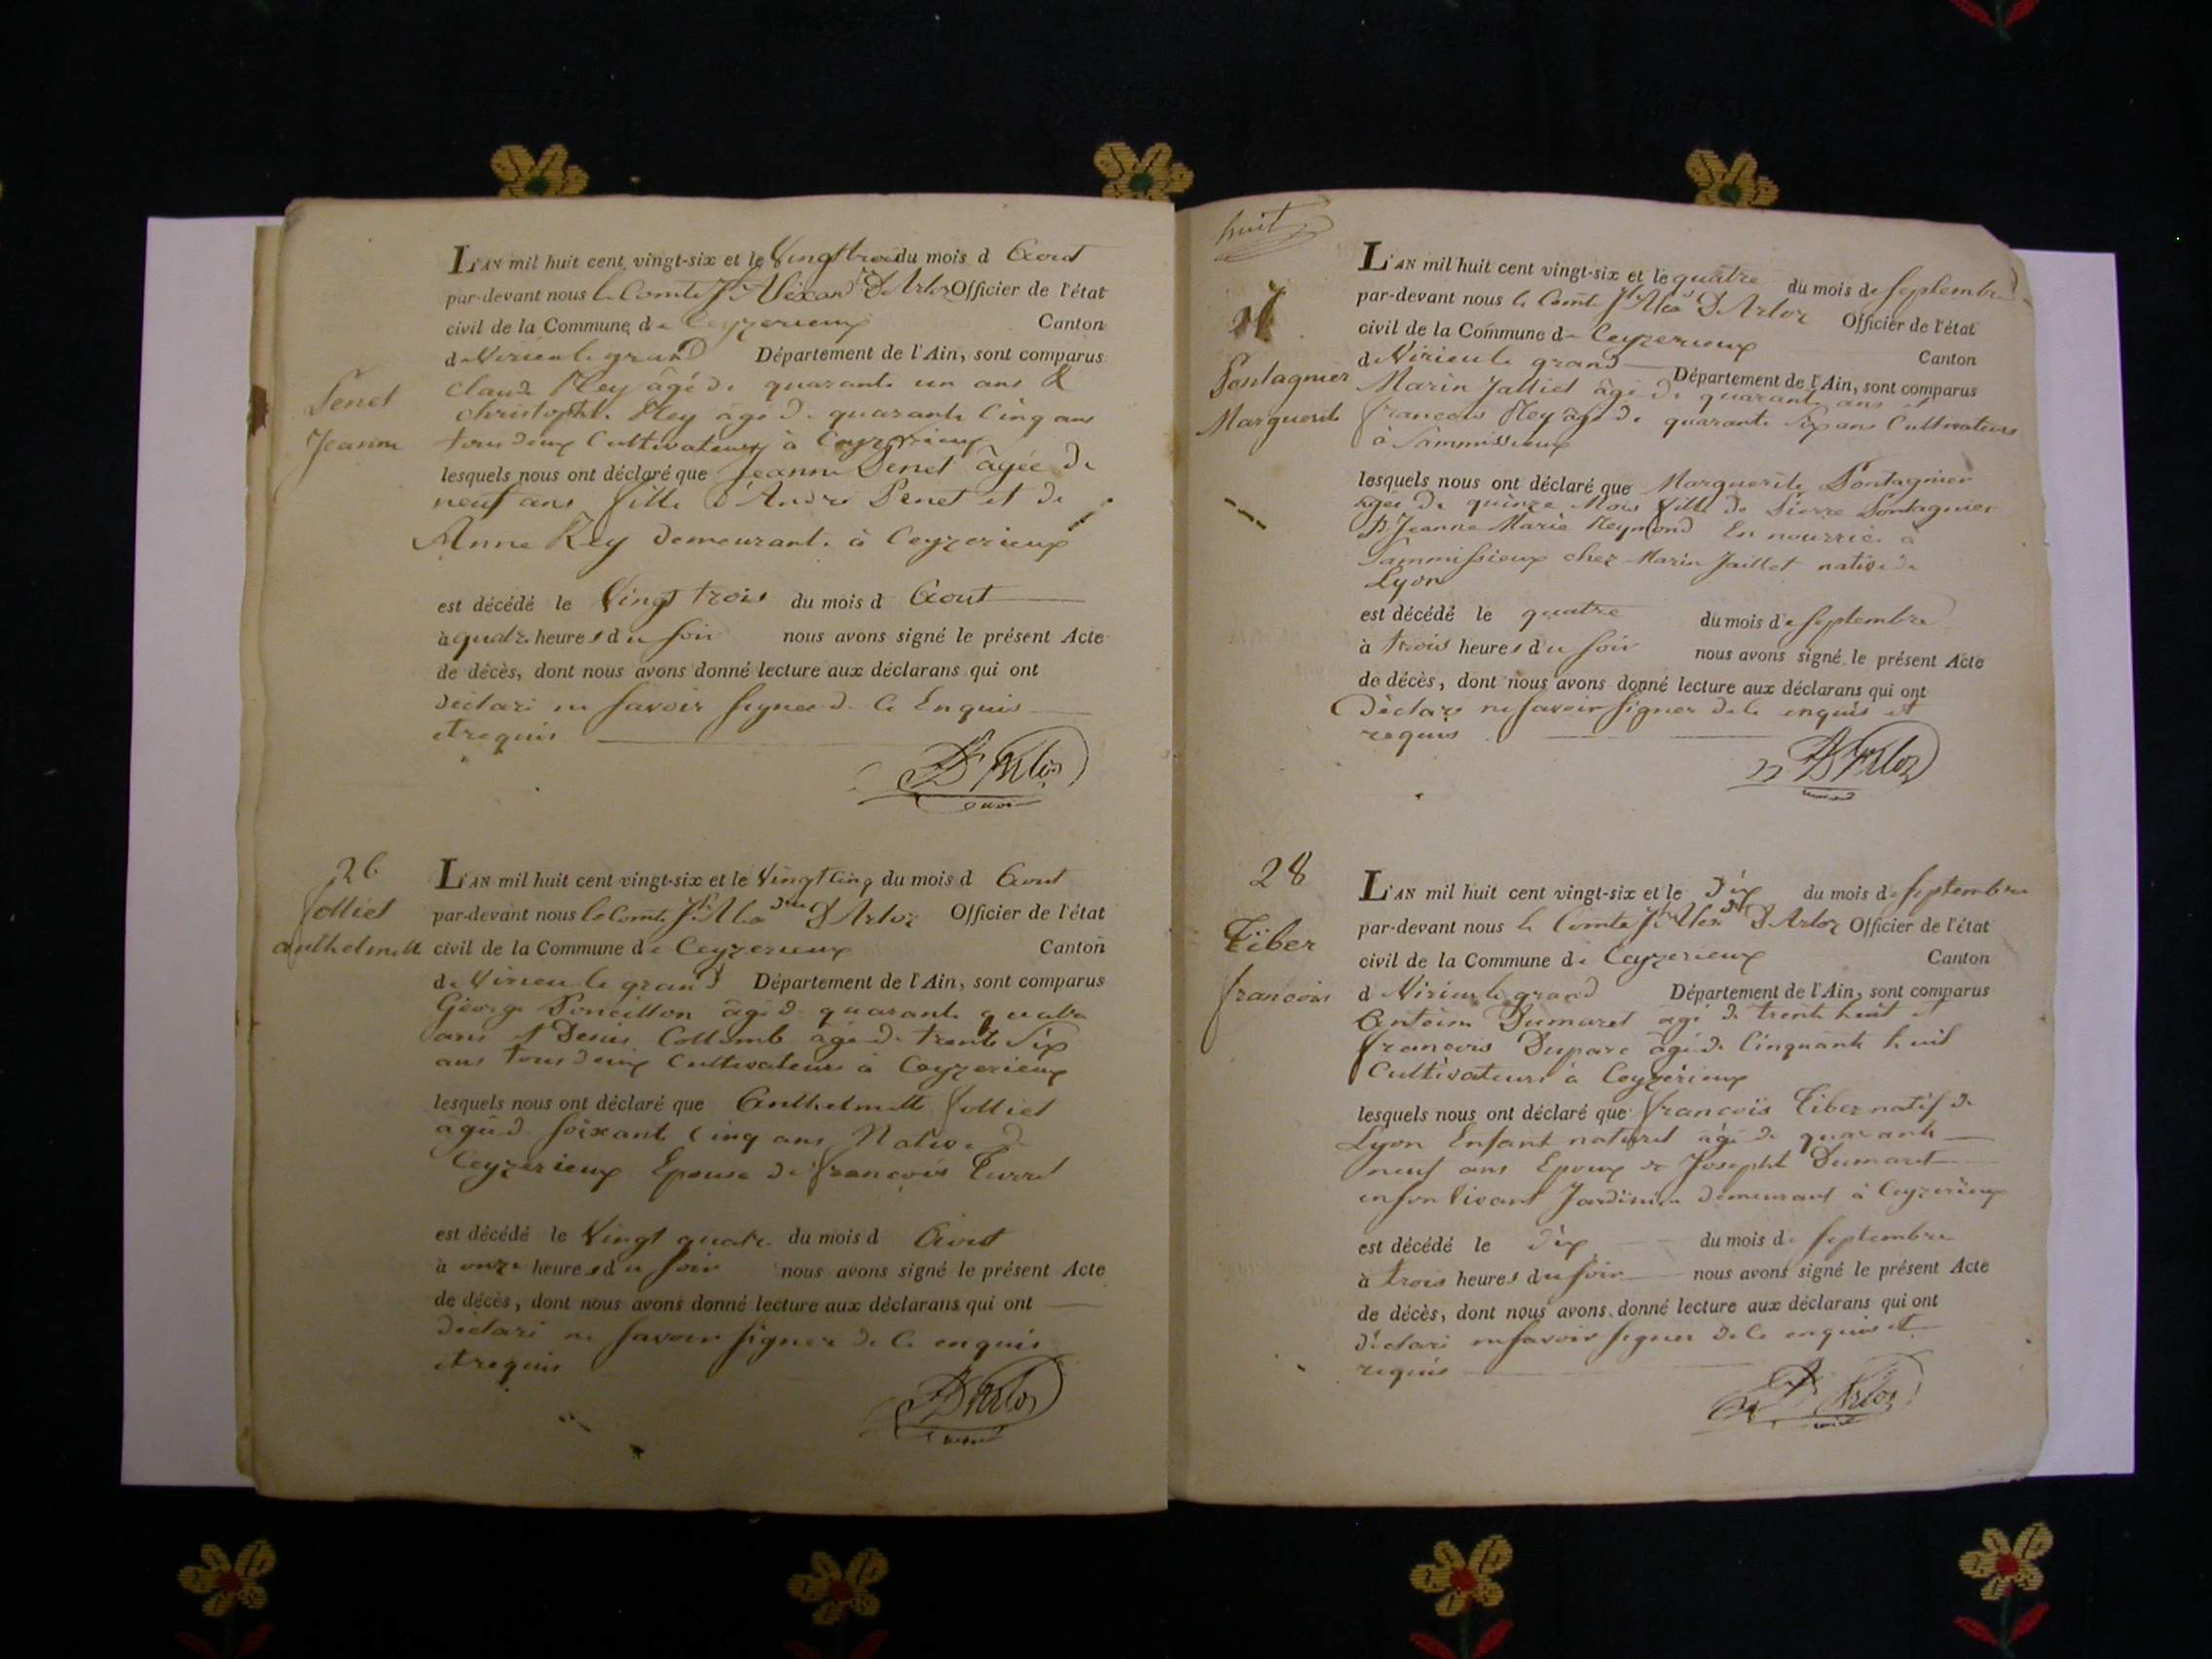 Penet
Jeanne
L'AN mil huit cent vingt-six et le Vingt trois du mois d Aout
par-devant nous le Comte Jh Alexandre D'Arloz Officier de l'état
civil de la Commune de Ceyzerieux Canton
de Virieu le grand Département de l'Ain, sont comparus
Claud Rey âgé de quarante un ans &
christophle Rey âgé de quarante Cinq ans
tous deux Cultivateurs à Ceyzerieux
lesquels nous ont déclaré que Jeanne Penet âgée de
neuf ans fille d'André Penet et de
Anne Rey demeurante à Ceyzerieux
est décédé le Vingt trois du mois d Aout
à quatre heures du soir nous avons signé le présent Acte
de décès, dont nous avons donné lecture aux déclarans qui ont
déclaré ne savoir signer de ce Enquis
et requis
D'Arloz
26
Jolliet
anthelmette
L'AN mil huit cent vingt-six et le Vingt cinq du mois d Aout
par-devant nous le Comte Jh Alexdre D'Arloz Officier de l'état
civil de la Commune de Ceyzerieux Canton
de Virieu le grand Département de l'Ain, sont comparus
George Poncillon âgé de quarante quatre
ans et Denis Collomb âgé de trente Six
ans tous deux Cultivateurs à Ceyzerieux
lesquels nous ont déclaré que Anthelmette Jolliet
agée de soixante cinq ans Native de
Ceyzerieux Epouse de francois
est décédé le Vingt quatre du mois d Aout
à onze heures du soir nous avons signé le présent Acte
de décès, dont nous avons donné lecture aux déclarans qui ont
déclaré ne savoir signer de ce enquis
et requis
D'Arloz
huit
27
Pontagnier
Marguerite
L'AN mil huit cent vingt-six et le quatre du mois de septembre
par-devant nous le Comte Jh Alexd D'Arloz Officier de l'état
civil de la Commune de Ceyzerieux Canton
de Virieu le grand Département de l'Ain, sont comparus
Marin Jalliet âgé de quarante ans et
francois Rey âgé de quarante Six ans Cultivateurs
à Sammissieux
lesquels nous ont déclaré que Marguerite Pontagnier
agée de quinze Mois fille de Pierre Pontagnier
& Jeanne Marie Reymond En nourrice à
Sammissieux chez Marin Jaillet native de
Lyon
est décédé le quatre du mois de septembre
à trois heures du soir nous avons signé le présent Acte
de décès, dont nous avons donné lecture aux déclarans qui ont
Déclaré ne savoir signer de ce enquis et
requis
D'Arloz
28
Tiber
francois
L'AN mil huit cent vingt-six et le dix du mois de septembre
par-devant nous le Comte Jh Alexdre D'Arloz Officier de l'état
civil de la Commune de Ceyzerieux Canton
d Virieu le grand Département de l'Ain, sont comparus
Antoine Dumaret agé de trente huit et
francois Duparc âgé de Cinquante huit
Cultivateurs à Ceyzérieux
lesquels nous ont déclaré que francois Tiber natif de
Lyon Enfant naturel âgé de quarante
neuf ans Epoux de Josephte Dumaret
en son vivant Jardinier demeurant à Ceyzerieux
est décédé le dix du mois de septembre
à trois heures du soir nous avons signé le présent Acte
de décès, dont nous avons donné lecture aux déclarans qui ont
déclaré ne savoir signer de ce enquis et
requis
D'Arloz